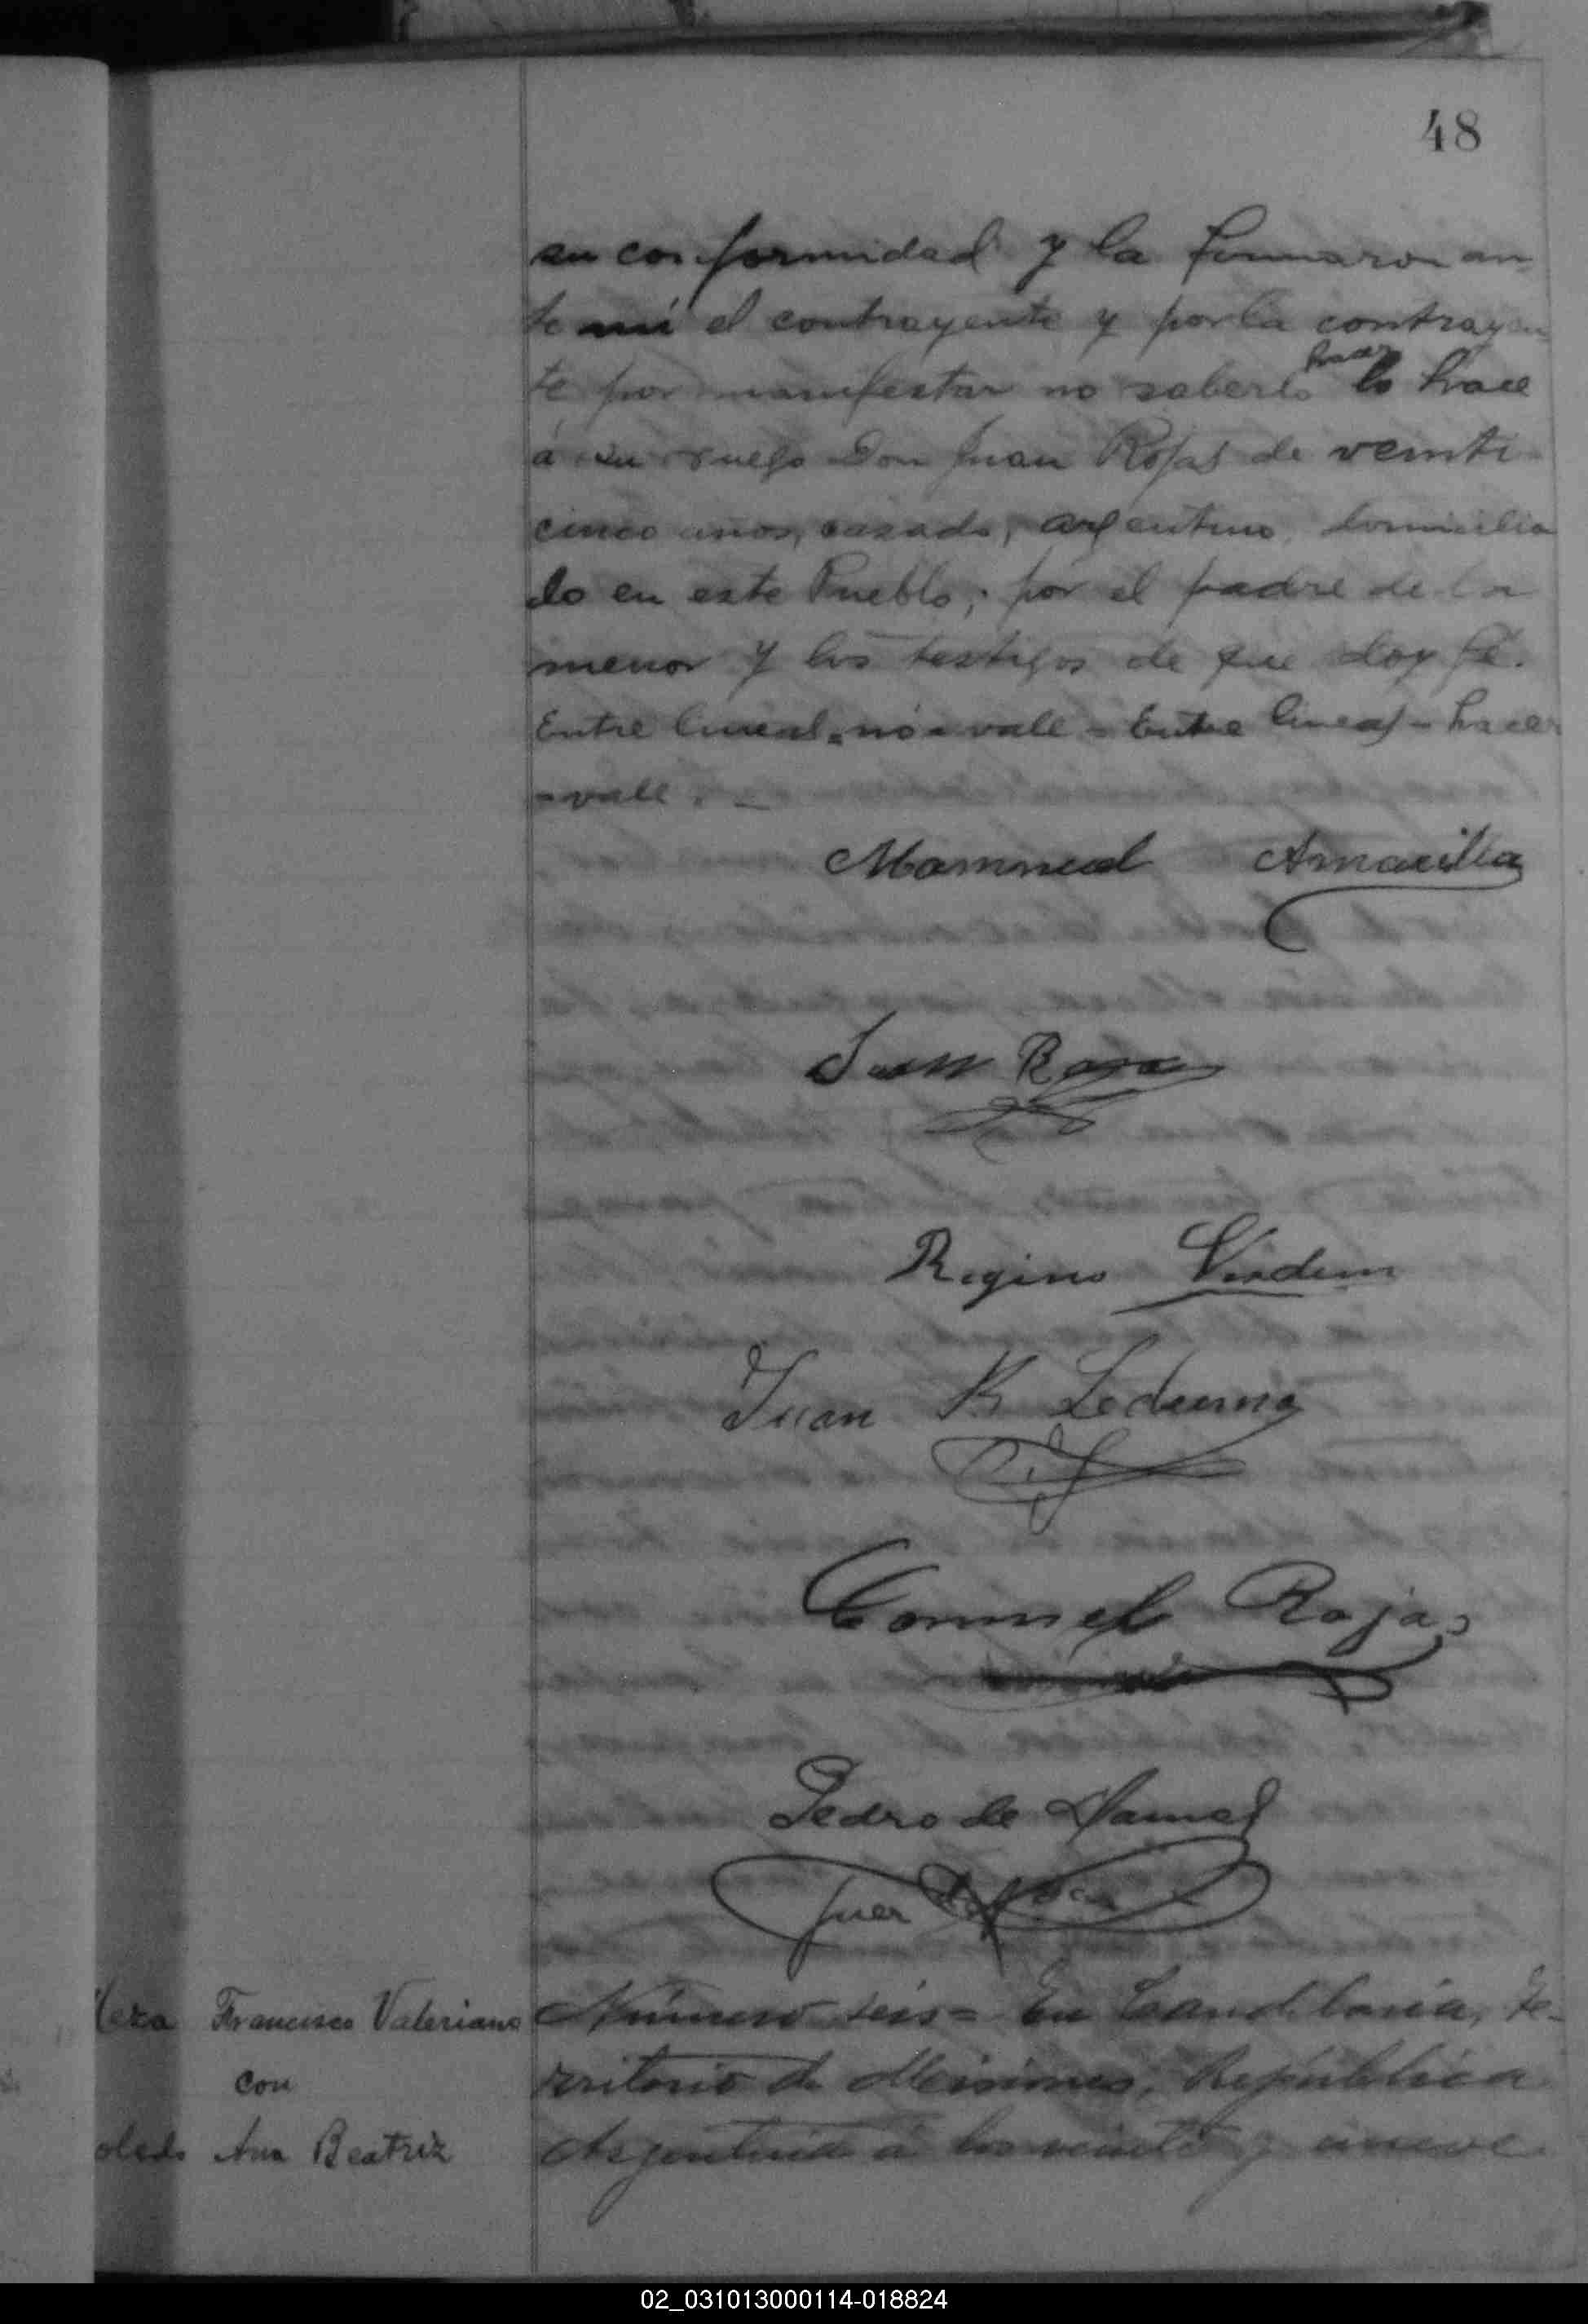 48
su conformidad y la firmaron an-
te mí el contrayente y por la contrayen
te por manifestar no saberlo hacer lo hace
á su ruego Don Juan Rojas de veinti
cinco años, casado, argentino, domicilia
do en este Pueblo; por el padre de la
menor y los testigos de que doy fé.
Entre lineas = nó = vale = Entre lineas = hacer
= vale. _
Mamnuel Amarilla
Juan
Regino
Juan R Ledesma
Rojas
Pedro de
Juez de Paz
Francisco Valeriano
con
Ana Beatriz
Número seis = En Candelaria, Te-
rritorio de Misiones, República
Argentina á los veinte y nueve
02_031013000114-018824